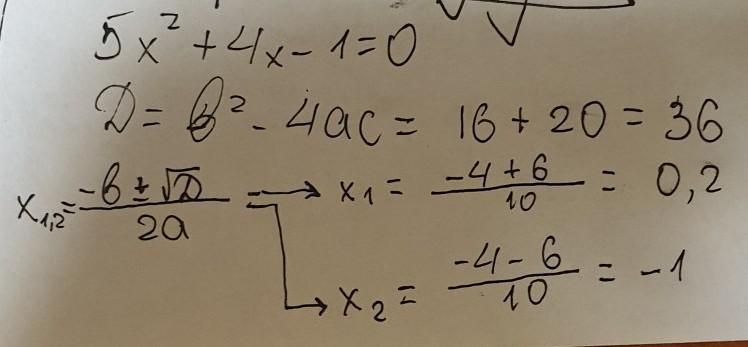 5x² + 4x - 1 = 0
D = b² - 4ac = 16 + 20 = 36
x₁,₂ = (-b ± √D) / 2a → x₁ = (-4 + 6) / 10 = 0,2
→ x₂ = (-4 - 6) / 10 = -1